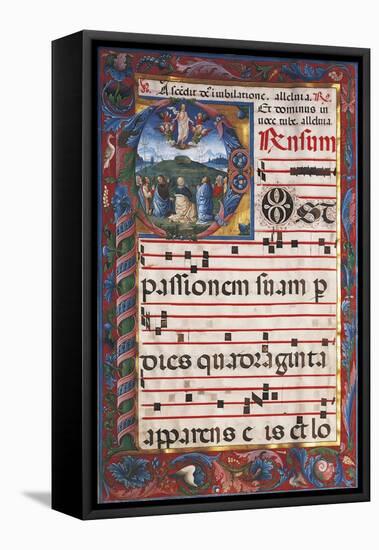 ℣. Ascēdit de⁹ i iubilatione. alleluia. ℟.
Et dominus in
uoce tube. alleluia.
Rensum
Ost
passionem suam p
dies quadraginta
apparens e is et lo